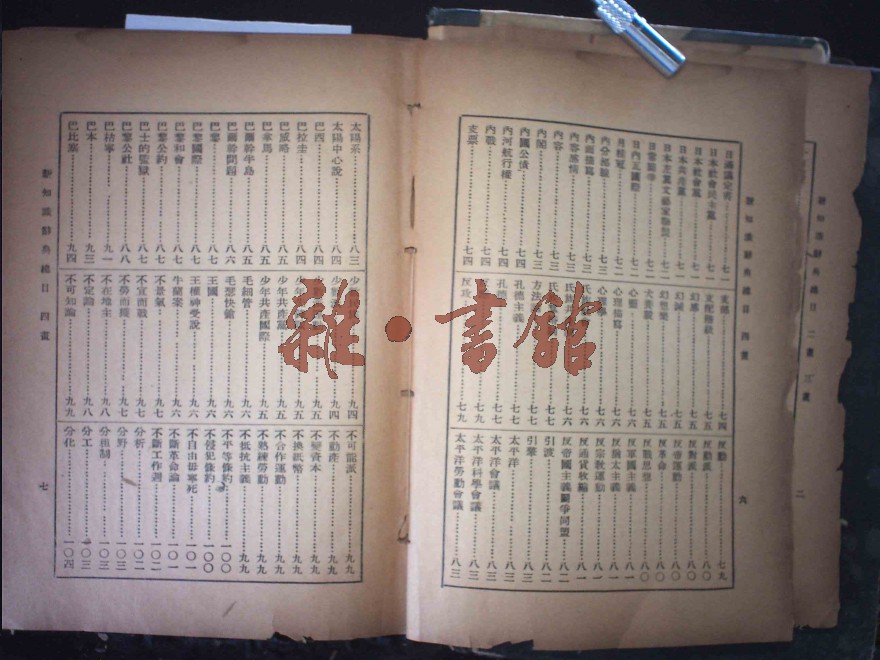 新知識辭典總目 二畫 三畫
二
新知識辭典總目 四畫
六
日本社會民主黨……七二
日本社會黨……七二
日本共產黨……七二
日本左翼文藝家聯盟……七二
日內瓦國際……七二
內分泌腺……七三
內容……七三
內閣……七三
內國公債……七四
內河航行權……七四
內戰……七四
支票……七四
支部……七四
支配階級……七五
幻感……七五
幻滅……七五
幻想樂……七五
犬儒派……七五
心理描寫……七六
心理學……七六
孔德主義……七七
反動……七九
反動派……八〇
反對派……八〇
反帝運動……八〇
反革命……八〇
反戰思想……八〇
反軍國主義……八一
反猶太主義……八一
反宗教運動……八一
反通貨收縮……八一
反帝國主義鬭爭同盟……八二
引渡……八二
引擎……八二
太平洋……八二
太平洋會議……八三
太平洋科學會議……八三
太平洋勞動會議……八三
新知識辭典總目 四畫
七
太陽系……八三
太陽中心說……八四
巴西……八四
巴拉圭……八四
巴威略……八四
巴拿馬……八五
巴爾幹半島……八五
巴爾幹問題……八六
巴黎……八七
巴黎國際……八七
巴黎和會……八七
巴黎公約……八七
巴士的監獄……八七
巴黎公社……八八
巴枯寧……九一
巴本……九三
巴比塞……九四
少年共產黨……九五
少年共產國際……九五
毛細管……九五
毛瑟快鎗……九六
王國……九六
王權神受說……九六
牛蘭案……九六
不景氣……九七
不宣而戰……九七
不勞而獲……九七
不在地主……九八
不定論……九八
不可知論……九九
不可能派……九九
不動產……九九
不變資本……九九
不換紙幣……九九
不合作運動……九九
不熟練勞動……九九
不抵抗主義……九九
不平等條約……一〇〇
不侵犯條約……一〇〇
不自由毋寧死……一〇一
不斷革命論……一〇一
不斷工作週……一〇二
分析……一〇二
分野……一〇三
分租制……一〇三
分工……一〇三
分化……一〇四
雜·書館